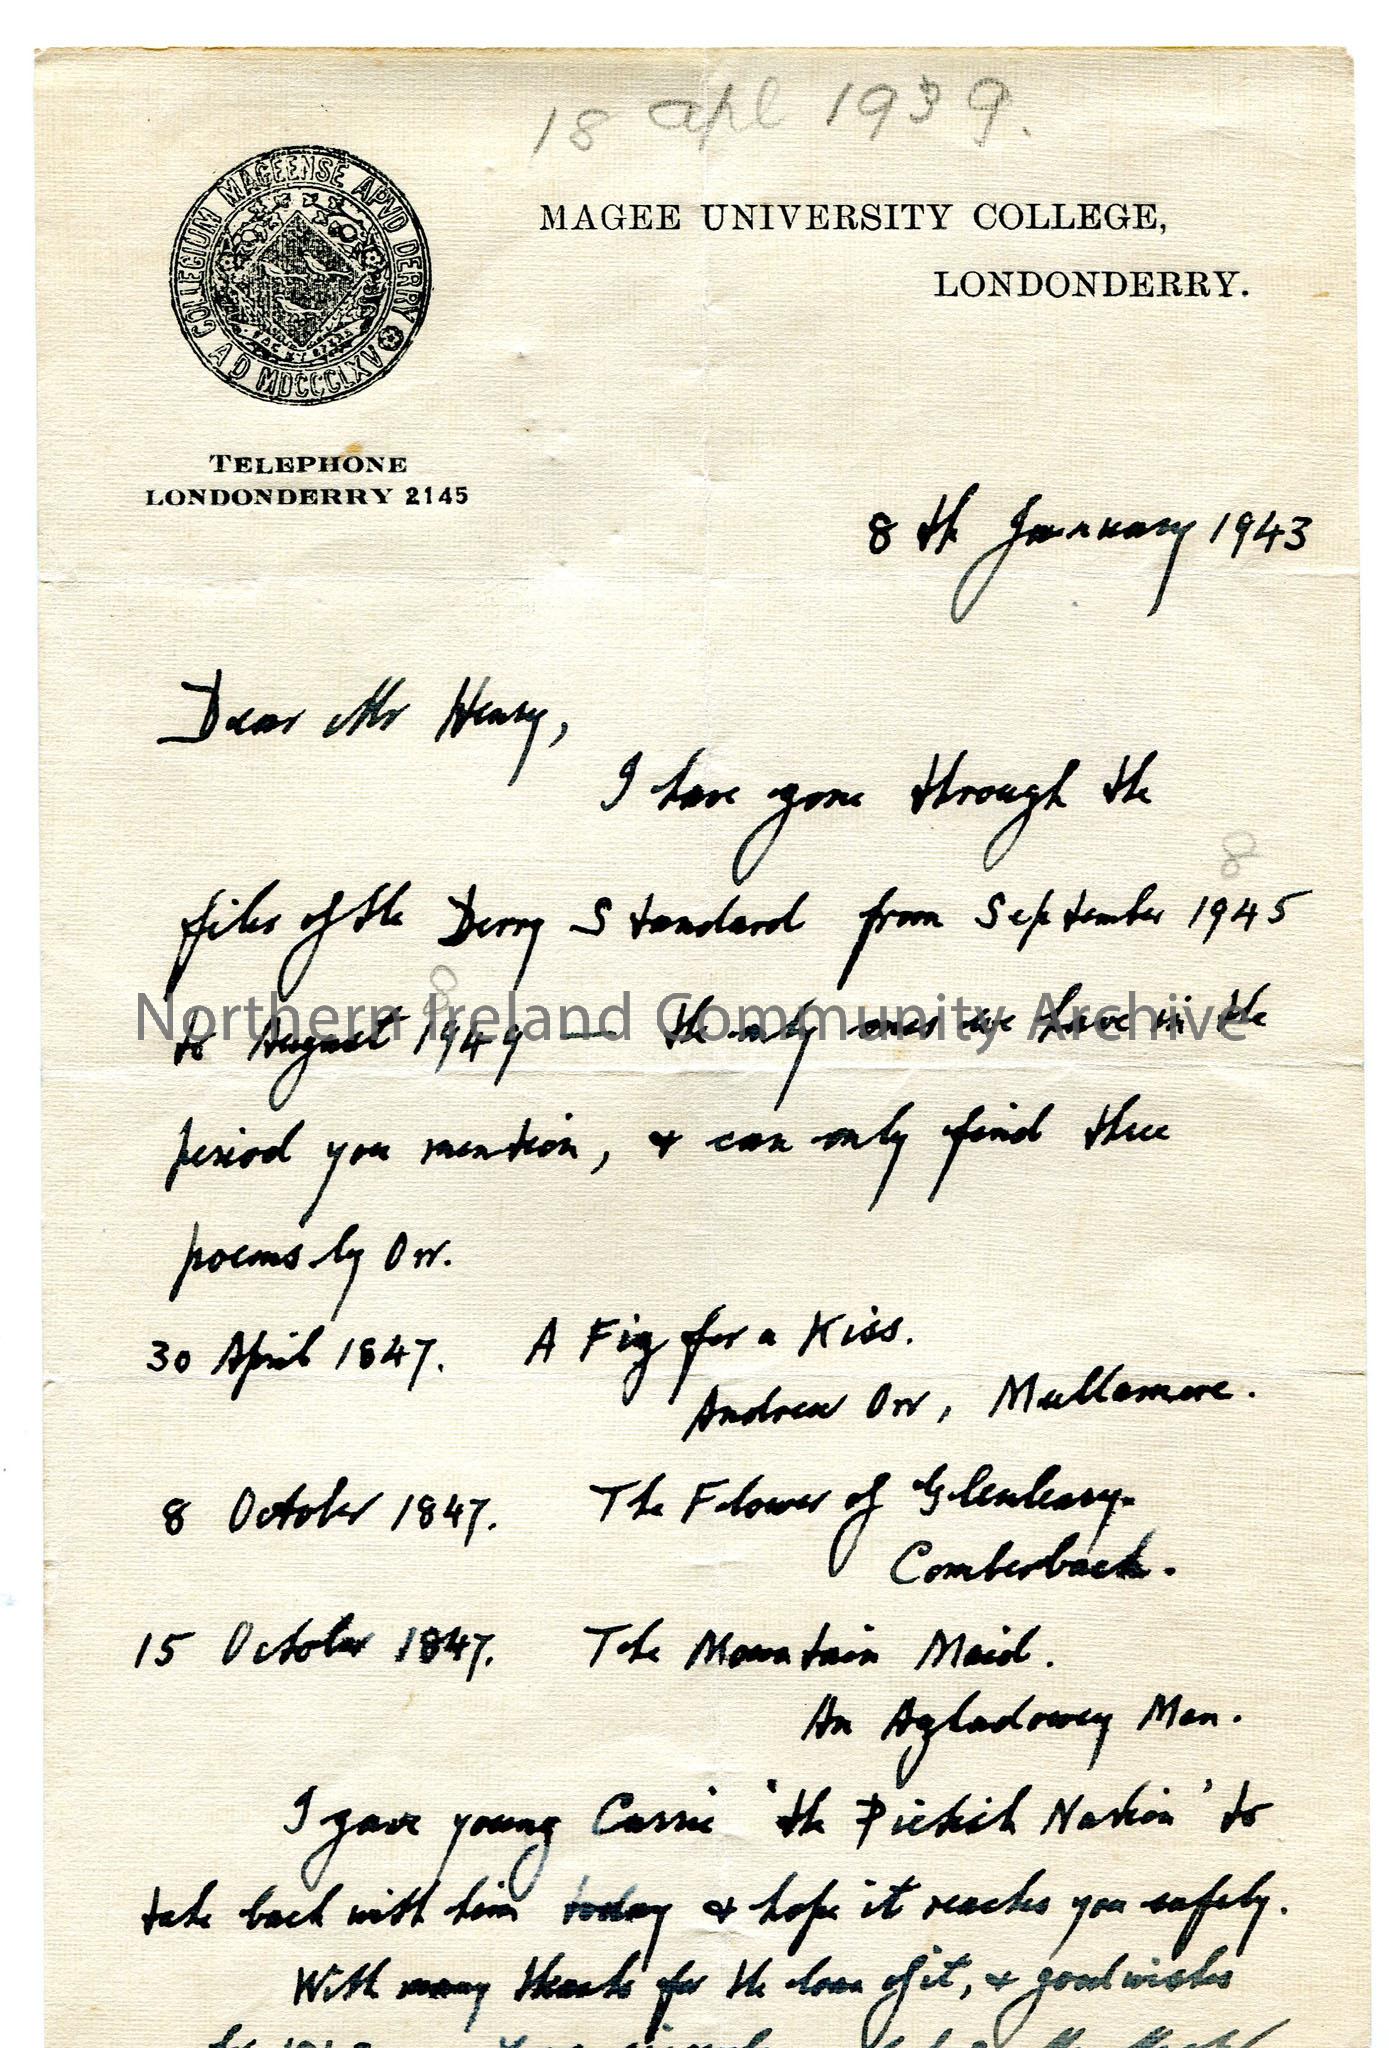 18 apl 1939.
COLLEGIUM MAGEENSE APVD DERRY
A D MDCCCLXV
MAGEE UNIVERSITY COLLEGE,
LONDONDERRY.
TELEPHONE
LONDONDERRY 2145
8 th January 1943
Dear Mr Henry,
I have gone through the
8
files of the Derry Standard from September 1945
8
to August 1949 — the only ones we have in the
Northern Ireland Community Archive
period you mention, & can only find three
poems by Orr.
30 April 1847. A Fig for a Kiss.
Andrew Orr, Mullamore.
8 October 1847. The Flower of Glenleary.
Comberbach.
15 October 1847. The Mountain Maid.
An Aghadowey Man.
I gave young Currie 'the Pictish Nation' to
take back with him today & hope it reaches you safely.
With many thanks for the loan of it, & good wishes